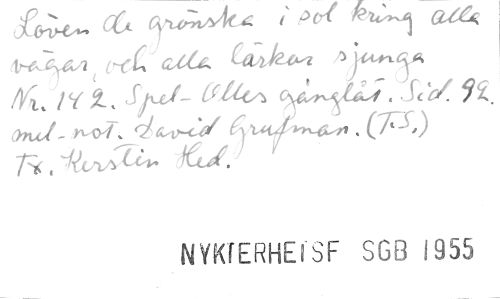 Löven de grönska i sol kring alla
vägar, och alla lärkar sjunga
Nr. 142. Spel-Olles gånglåt. Sid. 92.
mel-not. David Grufman. (T.S.)
Tx. Kerstin Hed.
NYKTERHETSF SGB 1955